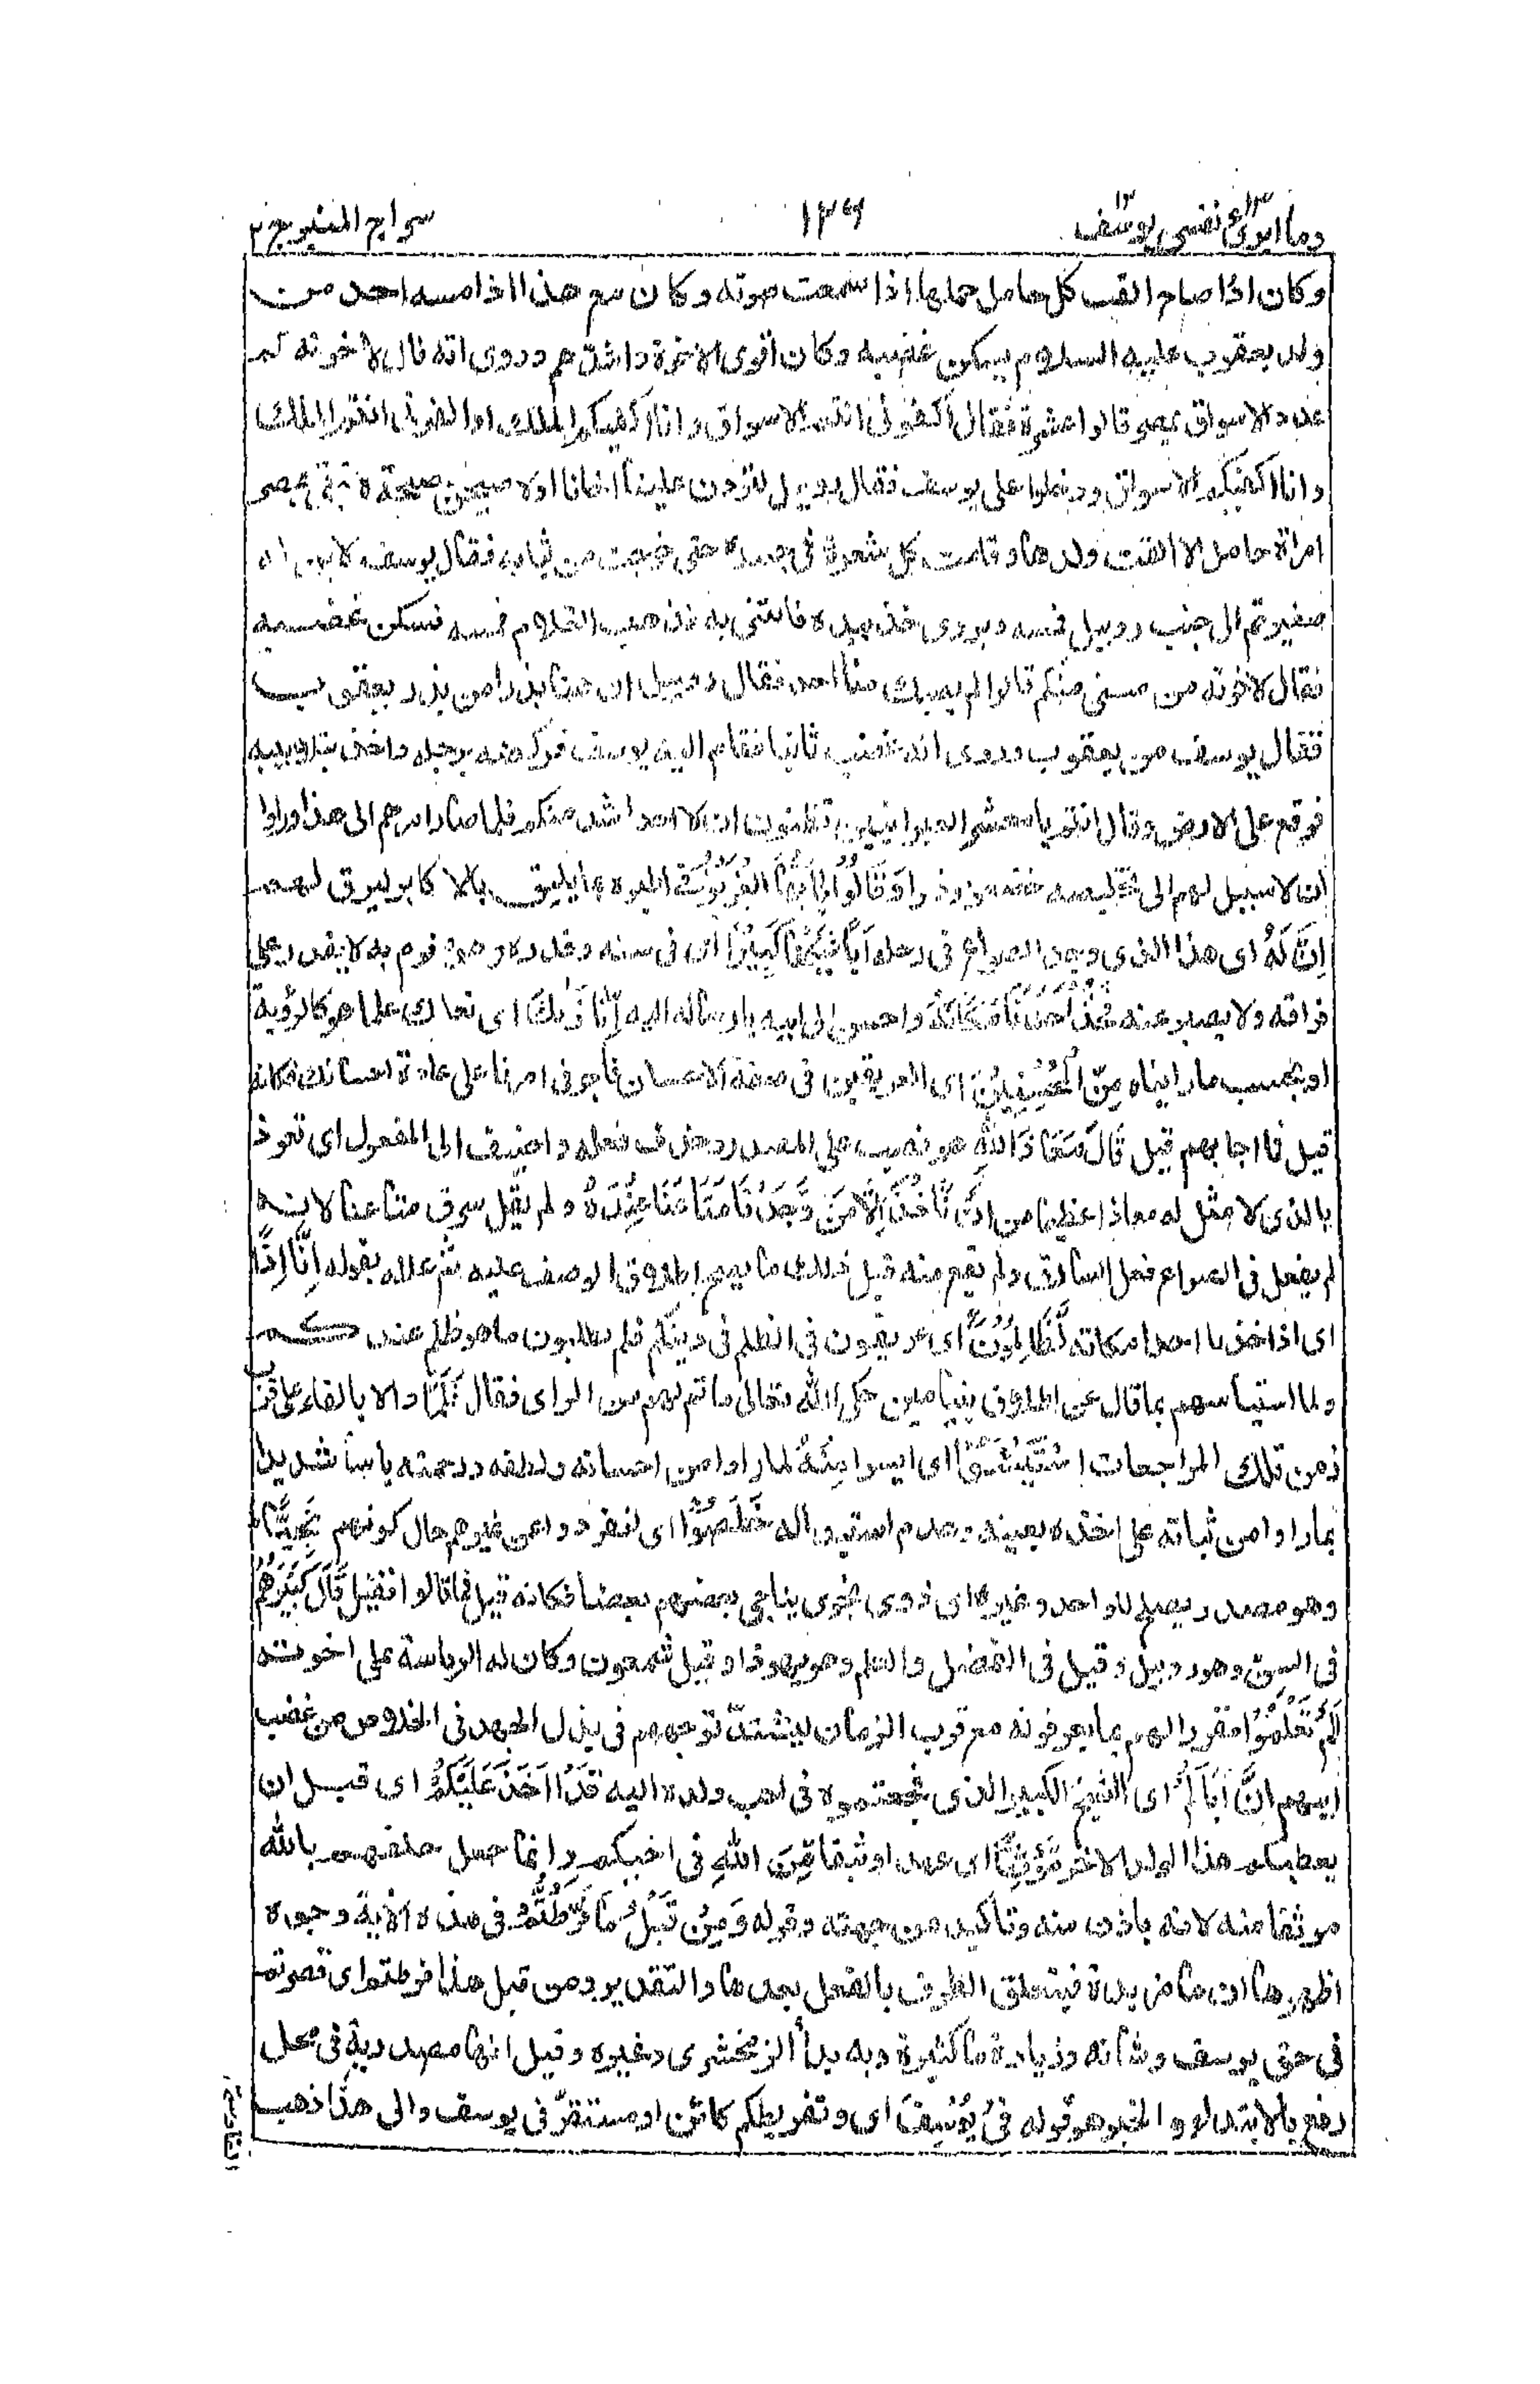 وما ابرئ نفسي يوسف ١٢
١٣٦
سراج المنير ج ٢
وكان اذا صاح القت كل حامل حملها اذا سمعت صوته وكان مع هذا اذا مسه احد من
ولد يعقوب عليه السلام يسكن غضبه وكان اقوى الاخوة واشدهم وروى انه قال لاخوته كم
عدد الاسواق بمصر قالوا عشرة فقال اكفونى انتم الاسواق وانا اكفيكم الملك او اكفونى انتم الملك
وانا اكفيكم الاسواق ودخلوا على يوسف فقال روبيل لتردن علينا اخانا او لاصيحن صيحة لا تبقى بمصر
امراة حامل الا القت ولدها وقامت كل شعرة فى جسده حتى خرجت من ثيابه فقال يوسف لابن له
صغير قم الى جنب روبيل فمسه ويروى خذ بيده فائتنى به فذهب الغلام فمسه فسكن غضبه
فقال لاخوته من مسنى منكم قالوا لم يصبك منا احد فقال روبيل ان هنا بذرا من بذر يعقوب
فقال يوسف من يعقوب وروى انه غضب ثانيا فقام اليه يوسف فركضه برجله واخذ بتلابيبه
فوقع على الارض وقال انتم يا معشر العبرانيين تظنون ان لا احد اشد منكم فلما صار امرهم الى هذا وراوا
ان لا سبيل لهم الى تخليصه خضعوا وذلوا وَقَالُوا يٰاَيُّهَا الْعَزِيْزُ فخاطبوه بما يليق بالاكابر ليرق لهم
اِنَّ لَهٗ اى هذا الذى وجد الصواع فى رحله اَبًا شَيْخًا كَبِيْرًا اى فى سنه وقدره وهو مغرم به لا يقدر على
فراقه ولا يصبر عنه فَخُذْ اَحَدَنَا مَكَانَهٗ واحسن الى ابيه بارساله اليه اِنَّا نَرٰىكَ اى نعلمك علما هو كالرؤية
او بحسب ما رايناه مِنَ الْمُحْسِنِيْنَ اى العريقين فى صفة الاحسان فاجر فى امرنا على عادة احسانك فكانه
قيل فما اجابهم قيل قَالَ مَعَاذَ اللّٰهِ هو نصب على المصدر وحذف فعله واضيف الى المفعول اى نعوذ
بالذى لا مثل له معاذا عظيما من اَنْ نَّاْخُذَ اِلَّا مَنْ وَّجَدْنَا مَتَاعَنَا عِنْدَهٗ ولم يقل سرق متاعنا لانه
لم يفعل فى الصواع فعل السارق ولم يقع منه قبل ذلك ما يصح اطلاق الوصف عليه ثم علله بقوله اِنَّا اِذًا
اى اذا اخذنا احدا مكانه لَّظَالِمُوْنَ اى عريقون فى الظلم فى دينكم فلم تطلبون ما هو ظلم عندكم
ولما استياسهم بما قال عن اطلاق بنيامين حكى الله تعالى ما تم لهم من الراى فقال فَلَمَّا دالا بالفاء على قرب
زمن تلك المراجعات اسْتَيْئَسُوْا اى ايسوا مِنْهُ لما راوا من احسانه ولطفه ورحمته ياسا شديدا
بما راوا من ثباته على اخذه بعينه وعدم استبداله خَلَصُوْا اى انفردوا عن غيرهم حال كونهم نَجِيًّا
وهو مصدر يصلح للواحد وغيره اى ذوى نجوى يناجى بعضهم بعضا فكانه قيل فما قالوا فقيل قَالَ كَبِيْرُهُمْ
فى السن وهو روبيل وقيل فى الفضل والعلم وهو يهوذا وقيل شمعون وكان له الرياسة على اخوته
اَلَمْ تَعْلَمُوْا مقررا لهم بما يعرفونه مع قرب الزمان ليشتد توجههم فى بذل الجهد فى الخلاص من غضب
ابيهم اَنَّ اَبَاكُمْ اى الشيخ الكبير الذى فجعتموه فى احب ولده اليه قَدْ اَخَذَ عَلَيْكُمْ اى قبل ان
يعطيكم هذا الولد الاخر مَّوْثِقًا اى عهدا وثيقا مِّنَ اللّٰهِ فى اخيكم وانما جعل حلفهم بالله
موثقا منه لانه باذن منه وتاكيد من جهته وقوله وَمِنْ قَبْلُ مَا فَرَّطْتُمْ فى هذه الاية وجوه
اظهرها ان ما مزيدة فيتعلق الظرف بالفعل بعدها والتقدير ومن قبل هذا فرطتم اى قصرتم
فى حق يوسف وشانه وزيادة ما كثيرة وبه بدأ الزمخشرى وغيره وقيل انها مصدرية فى محل
رفع بالابتداء والخبر هو قوله فِىْ يُوْسُفَ اى وتفريطكم كائن او مستقر فى يوسف والى هذا ذهب